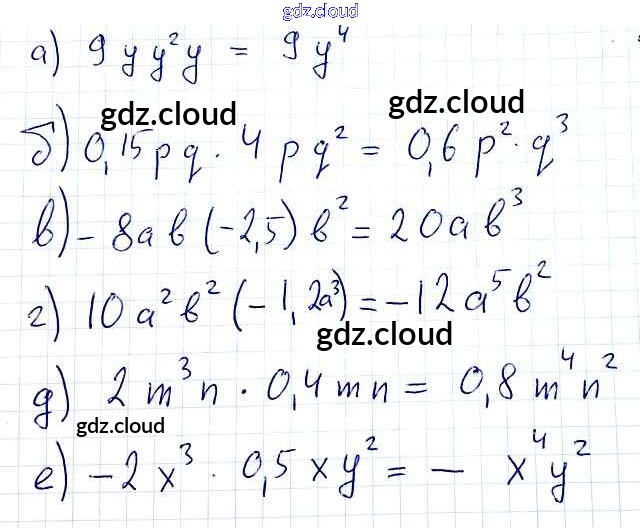 gdz.cloud
а) 9 y y² y = 9 y⁴
gdz.cloud gdz.cloud
б) 0,15 p q · 4 p q² = 0,6 p² · q³
в) - 8 a b (-2,5) b² = 20 a b³
г) 10 a² b² (-1,2a³) = -12 a⁵ b²
gdz.cloud
д) 2 m³ n · 0,4 m n = 0,8 m⁴ n²
gdz.cloud
е) - 2 x³ · 0,5 x y² = - x⁴ y²